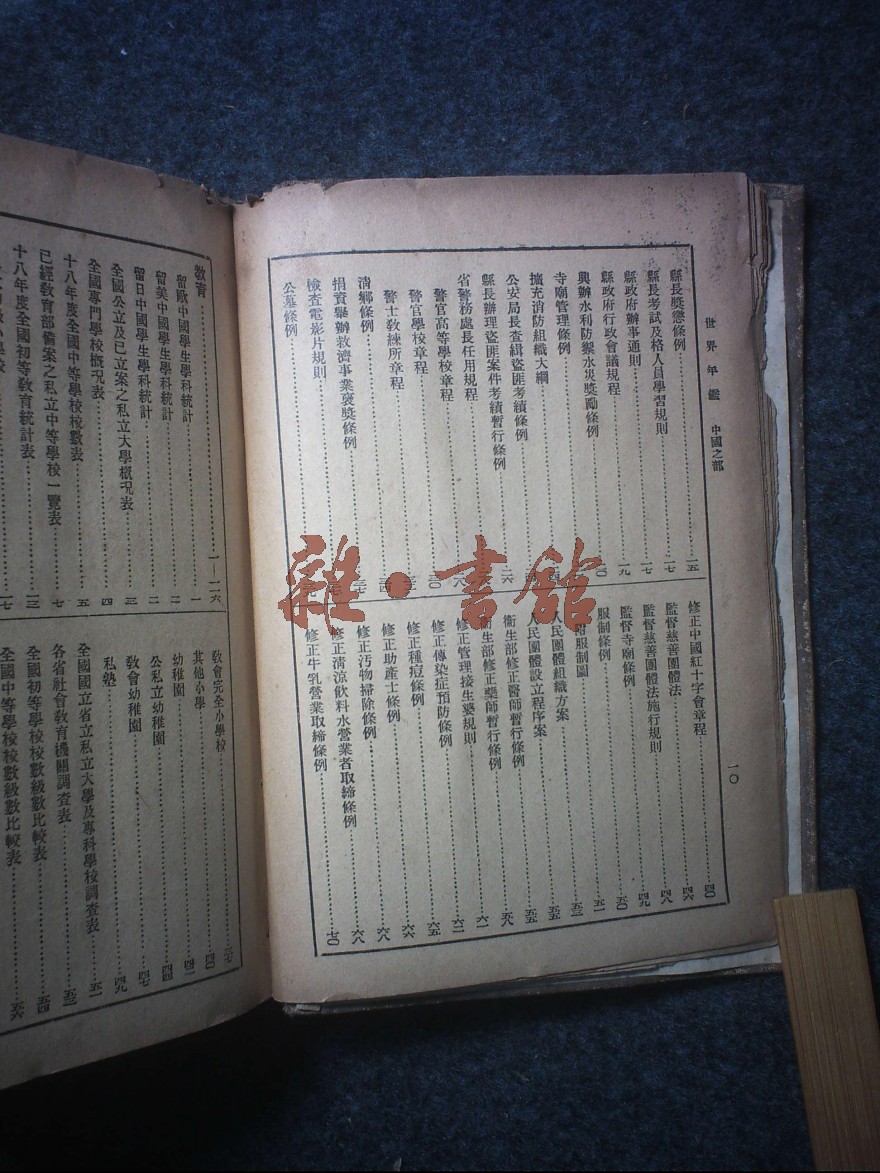 世界年鑑 中國之部
一〇
縣長獎懲條例……一五
縣長考試及格人員學習規則……一七
縣政府辦事通則……一七
縣政府行政會議規程……一九
興辦水利防禦水災獎勵條例
寺廟管理條例
擴充消防組織大綱
公安局長查緝盜匪考績條例
縣長辦理盜匪案件考績暫行條例
省警務處長任用規程
警官高等學校章程
警官學校章程
警士教練所章程
清鄉條例
捐資舉辦救濟事業褒獎條例
檢查電影片規則
公墓條例
修正中國紅十字會章程……四〇
監督慈善團體法……四六
監督慈善團體法施行規則……四八
監督寺廟條例……四九
服制條例……五〇
附服制圖……五一
人民團體組織方案……五三
人民團體設立程序案……五五
衞生部修正醫師暫行條例……五五
衞生部修正藥師暫行條例……五八
修正管理接生婆規則……六一
修正傳染症預防條例……六二
修正種痘條例……六五
修正助產士條例……六六
修正污物掃除條例……六八
修正清涼飲料水營業者取締條例……六八
修正牛乳營業取締條例……七〇
教育……一—二六
留歐中國學生學科統計……一
留美中國學生學科統計……二
留日中國學生學科統計……二
全國公立及已立案之私立大學概況表……三
全國專門學校概況表……四
十八年度全國中等學校校數表……五
已經教育部備案之私立中等學校一覽表……七
十八年度全國初等教育統計表……一三
一七
教會完全小學校……三七
其他小學……四〇
幼稚園……四二
公私立幼稚園……四四
教會幼稚園……四七
私塾……四九
全國國立省立私立大學及專科學校調查表……五一
各省社會教育機關調查表……五三
全國初等學校校數級數比較表……五四
全國中等學校校數級數比較表……五六
雜·書館